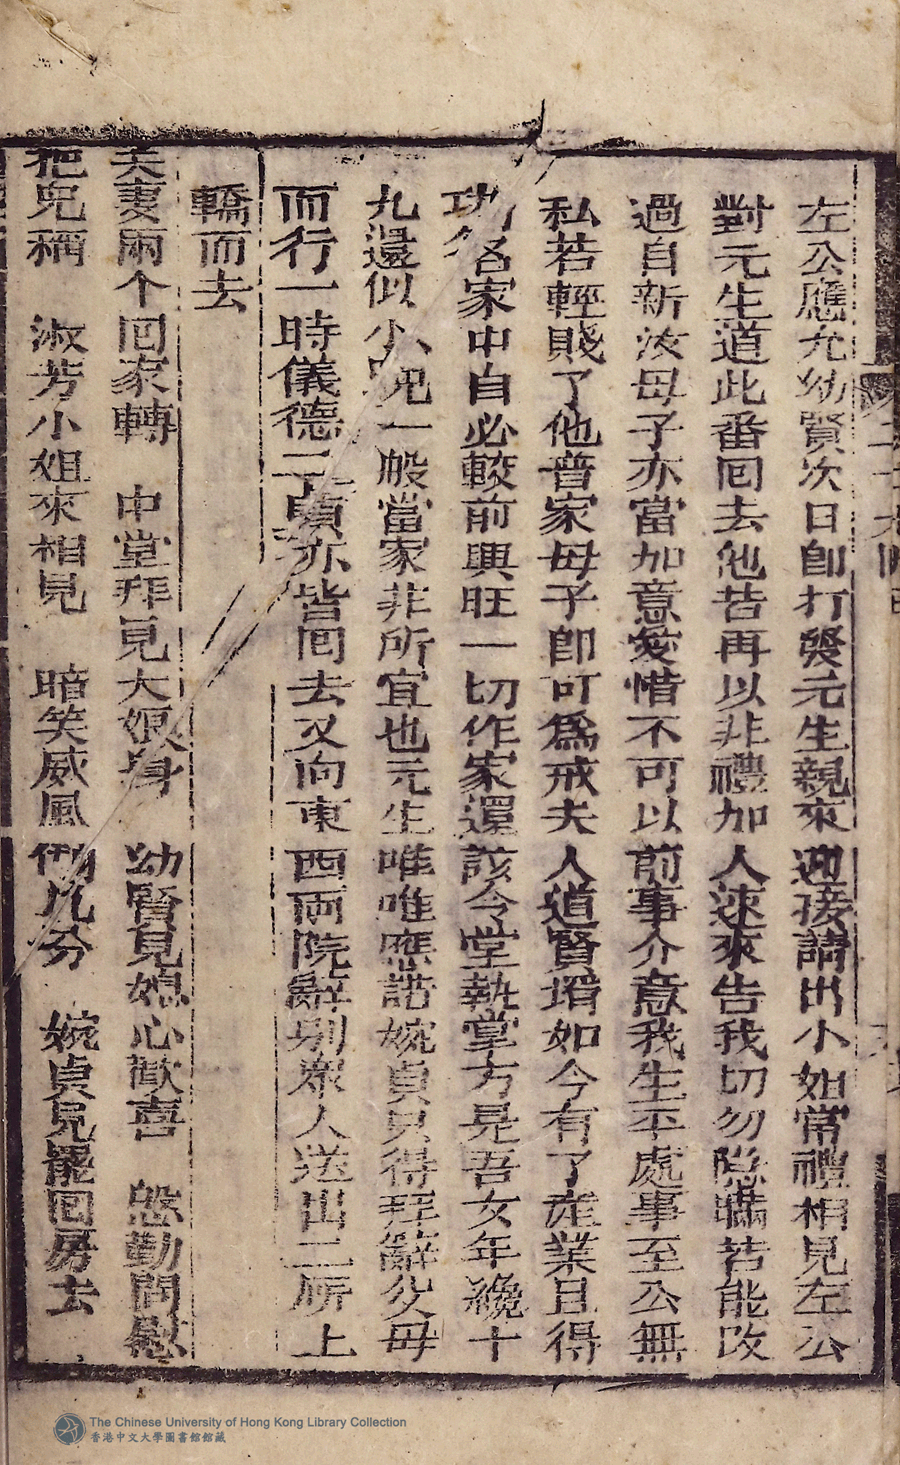 左公應允幼賢次日卽打發元生親來迎接請出小姐常禮相見左公
對元生道此番囘去他若再以非禮加人速來告我切勿隱瞞若能改
過自新汝母子亦當加意愛惜不可以前事介意我生平處事至公無
私若輕賤了他晋家母子卽可爲戒夫人道賢壻如今有了產業且得
功名家中自必較前興旺一切作家還該令堂執掌方是吾女年纔十
九還似小兒一般當家非所宜也元生唯唯應諾婉貞只得拜辭父母
而行一時儀德二貞亦皆囘去又向東西兩院辭别衆人送出二所上
轎而去
夫妻兩个囘家轉 中堂拜見大娘身 幼賢見媳心歡喜 慇勤問慰
把兒稱 淑芳小姐來相見 暗笑威風倒九分 婉貞見罷囘房去
The Chinese University of Hong Kong Library Collection
香港中文大學圖書館館藏